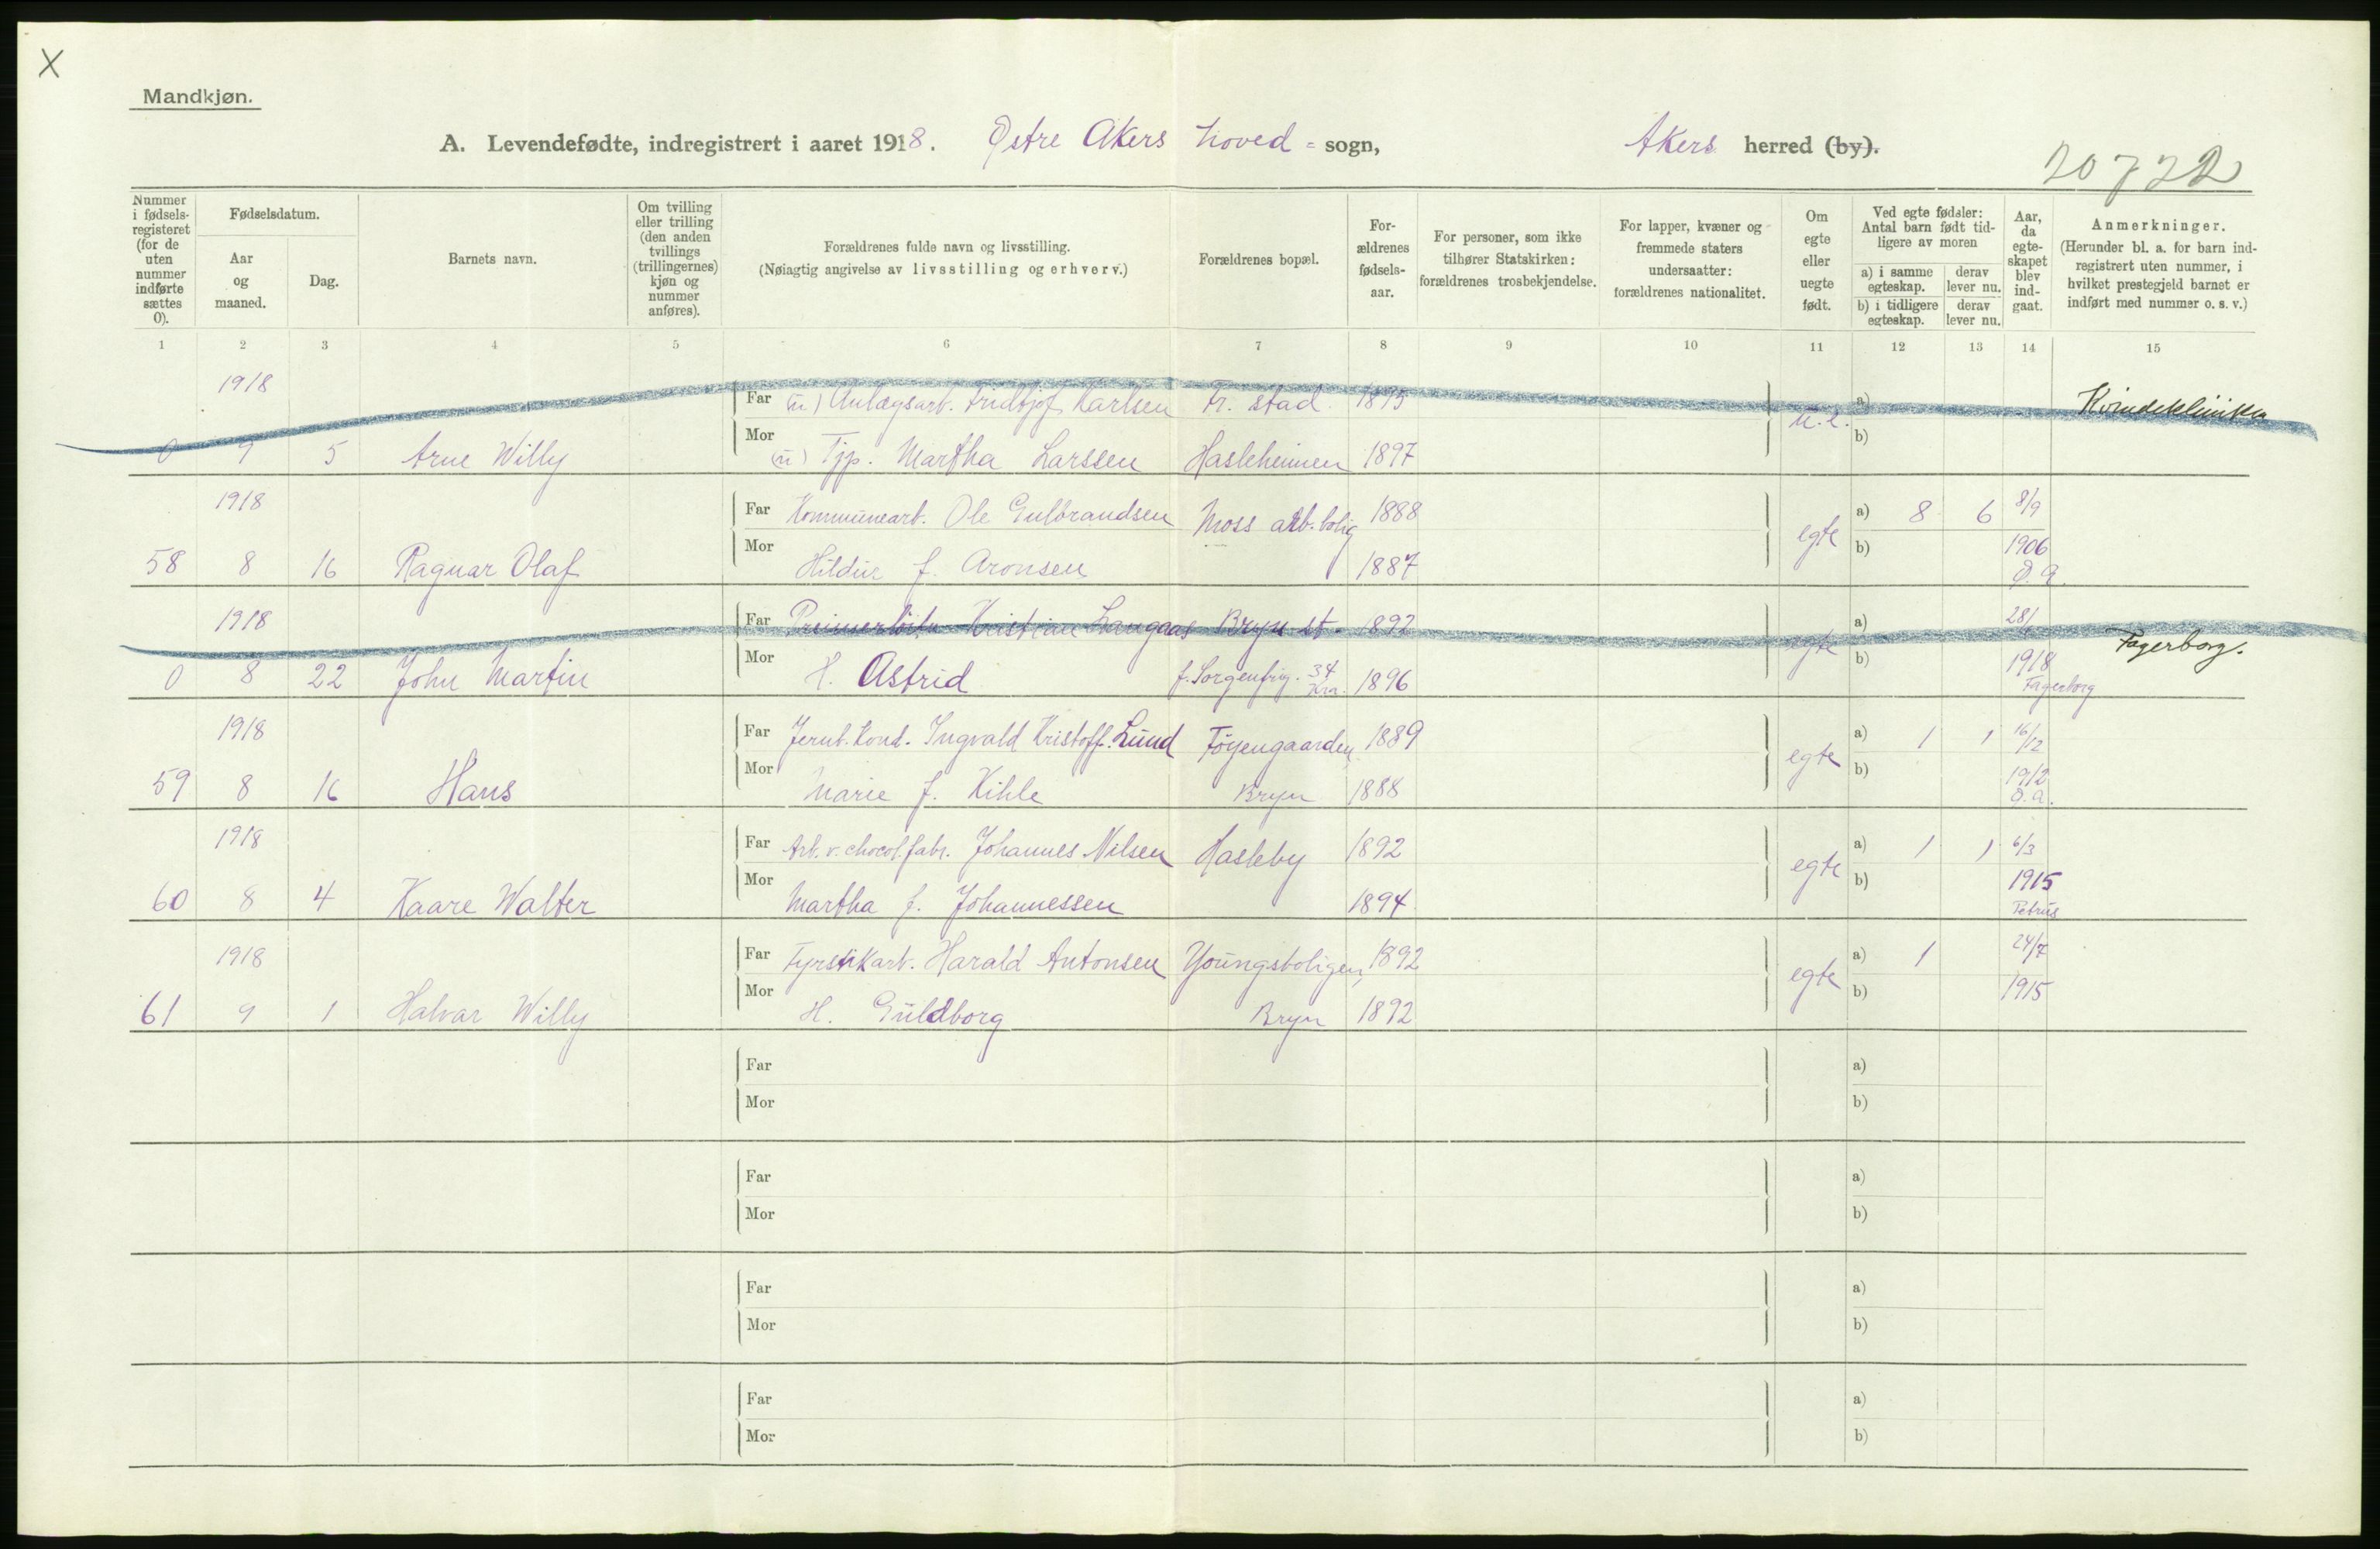 X
Mandkjøn.
A. Levendefødte, indregistrert i aaret 1918. Østre Akers hoved - sogn, Akers herred (by).
20722
Nummer i fødsels-registeret (for de uten nummer indførte sættes 0).
Fødselsdatum.
Aar og maaned.
Dag.
Barnets navn.
Om tvilling eller trilling (den anden tvillings (trillingernes) kjøn og nummer anføres).
Forældrenes fulde navn og livsstilling.
(Nøiagtig angivelse av livsstilling og erhverv.)
Forældrenes bopæl.
For-ældrenes fødsels-aar.
For personer, som ikke tilhører Statskirken: forældrenes trosbekjendelse.
For lapper, kvæner og fremmede staters undersaatter: forældrenes nationalitet.
Om egte eller uegte født.
Ved egte fødsler: Antal barn født tid-ligere av moren
a) i samme egteskap. derav lever nu.
b) i tidligere egteskap. derav lever nu.
Aar, da egte-skapet blev ind-gaat.
Anmerkninger.
(Herunder bl. a. for barn ind-registrert uten nummer, i hvilket prestegjeld barnet er indført med nummer o. s. v.)
1 2 3 4 5 6 7 8 9 10 11 12 13 14 15
1918
Far (u) Anlægsarb. Fridtjof Karlsen Fr. stad 1895 u.e. a) Kvindeklinikken
0 9 5 Arne Willy Mor (u) Tjp. Martha Larssen Hasleheimen 1897 b)
1918
Far Kommunearb. Ole Gulbrandsen Moss arb. bolig 1888 egte a) 8 6 8/9
58 8 16 Ragnar Olaf Mor Hildur f. Aronsen 1887 b) 1906
Ø. A.
1918
Far Kristian Langaas Bryn st. 1892 egte a) 28/ Fagerborg.
0 8 22 John Martin Mor H. Astrid f. Sorgenfrig. 34 Kra. 1896 b) 1918
Fagerborg
1918
Far Jernb. Kond. Ingvald Kristoff. Lund Tøyengaarden 1889 egte a) 1 1 16/12
59 8 16 Hans Mor Marie f. Kihle Bryn 1888 b) 1912
Ø. A.
1918
Far Arb. v. chocol. fabr. Johannes Nilsen Hasleby 1892 egte a) 1 1 6/3
60 8 4 Kaare Walter Mor Martha f. Johannessen 1894 b) 1915
Petrus
1918
Far Fyrstikarb. Harald Antonsen Youngsboligen, 1892 egte a) 1 24/7
61 9 1 Halvar Willy Mor H. Guldborg Bryn 1892 b) 1915
Far a)
Mor b)
Far a)
Mor b)
Far a)
Mor b)
Far a)
Mor b)